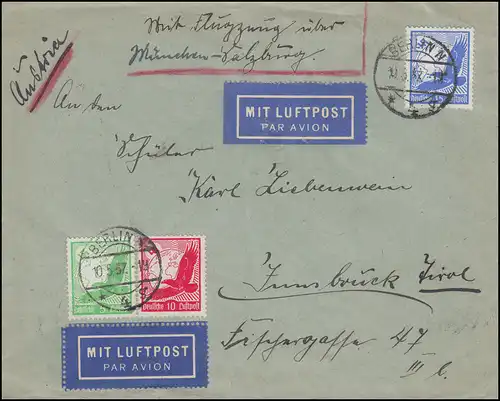 Austria
Mit Flugzeug über
München-Salzburg.
An den
BERLIN N
10.5.37
4
MIT LUFTPOST
PAR AVION
Schüler
Karl Liebenwein
BERLIN N
10.5.37
4
Deutsche Luftpost
10
Innsbruck Tirol
Fischergasse 47
III b.
MIT LUFTPOST
PAR AVION